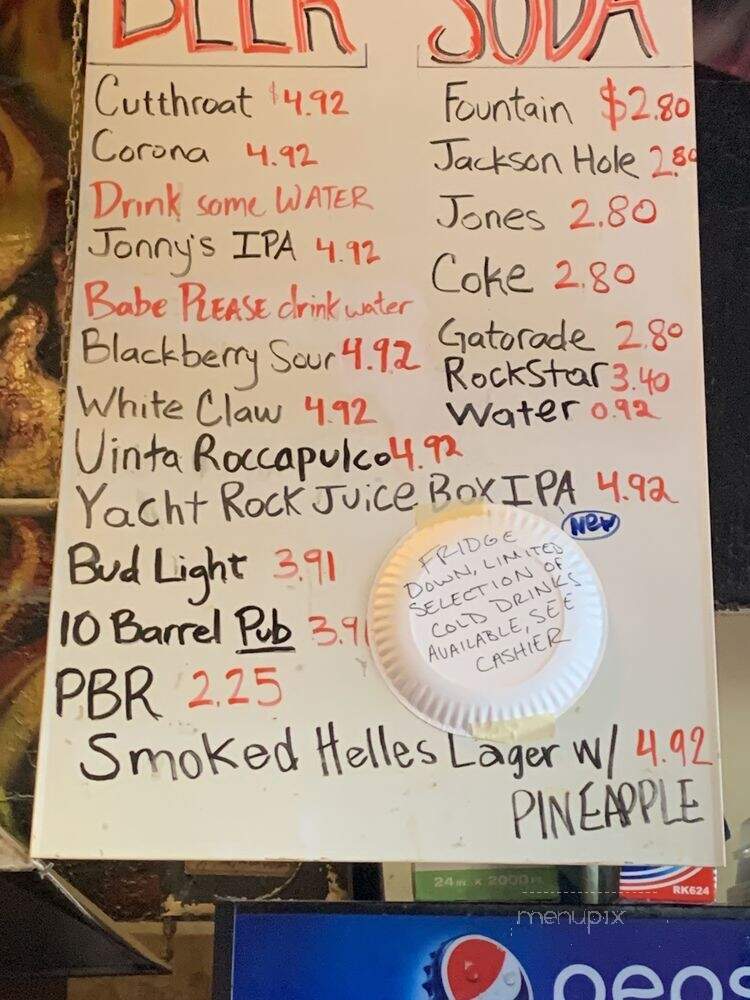 BEER
Cutthroat $4.92
Corona 4.92
Drink some WATER
Jonny's IPA 4.92
Babe PLEASE drink water
Blackberry Sour 4.92
White Claw 4.92
Uinta Roccapulco 4.92
Yacht Rock Juice Box IPA 4.92
New
Bud Light 3.91
10 Barrel Pub 3.91
PBR 2.25
Smoked Helles Lager w/ 4.92
PINEAPPLE
SODA
Fountain $2.80
Jackson Hole 2.80
Jones 2.80
Coke 2.80
Gatorade 2.80
RockStar 3.40
Water 0.92
FRIDGE
DOWN, LIMITED
SELECTION OF
COLD DRINKS
AVAILABLE, SEE
CASHIER
24 in. x 2000 FT.
RK624
menupix
peps